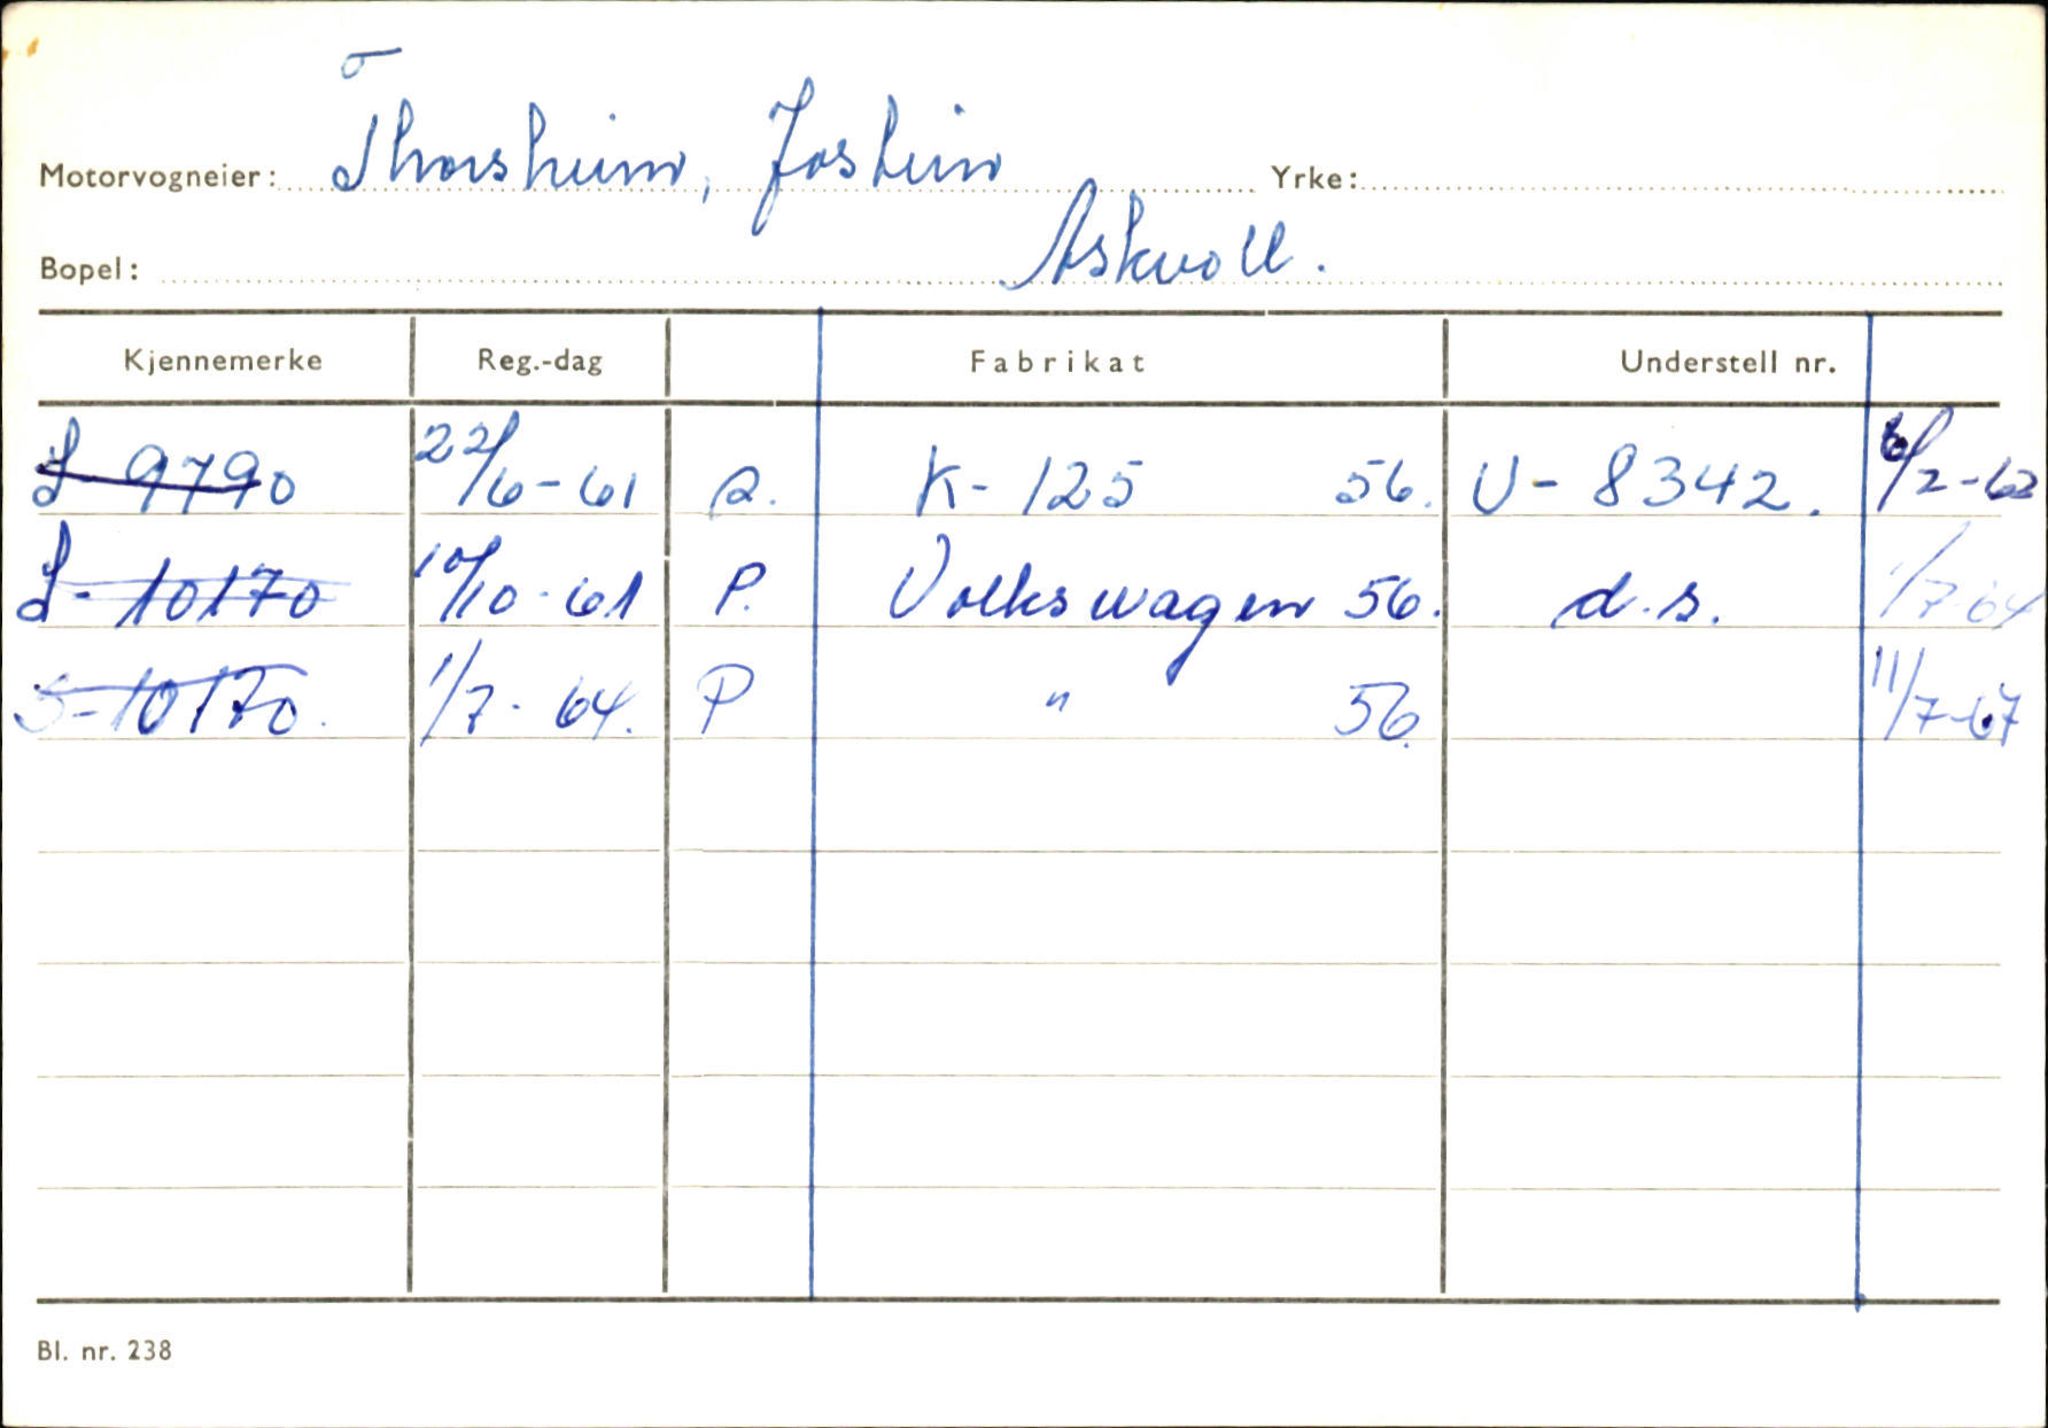 Motorvogneier: Thorsheim, Jostein Yrke:
Bopel: Askvoll.
Kjennemerke Reg.-dag Fabrikat Understell nr.
S-9790 22/6-61 2. K-125 56. U-8342. 6/2-62
S-10170 10/10-61 P. Volkswagen 56. d.s. 1/7-64
S-10170. 1/7-64. P " 56. 11/7-67
Bl. nr. 238